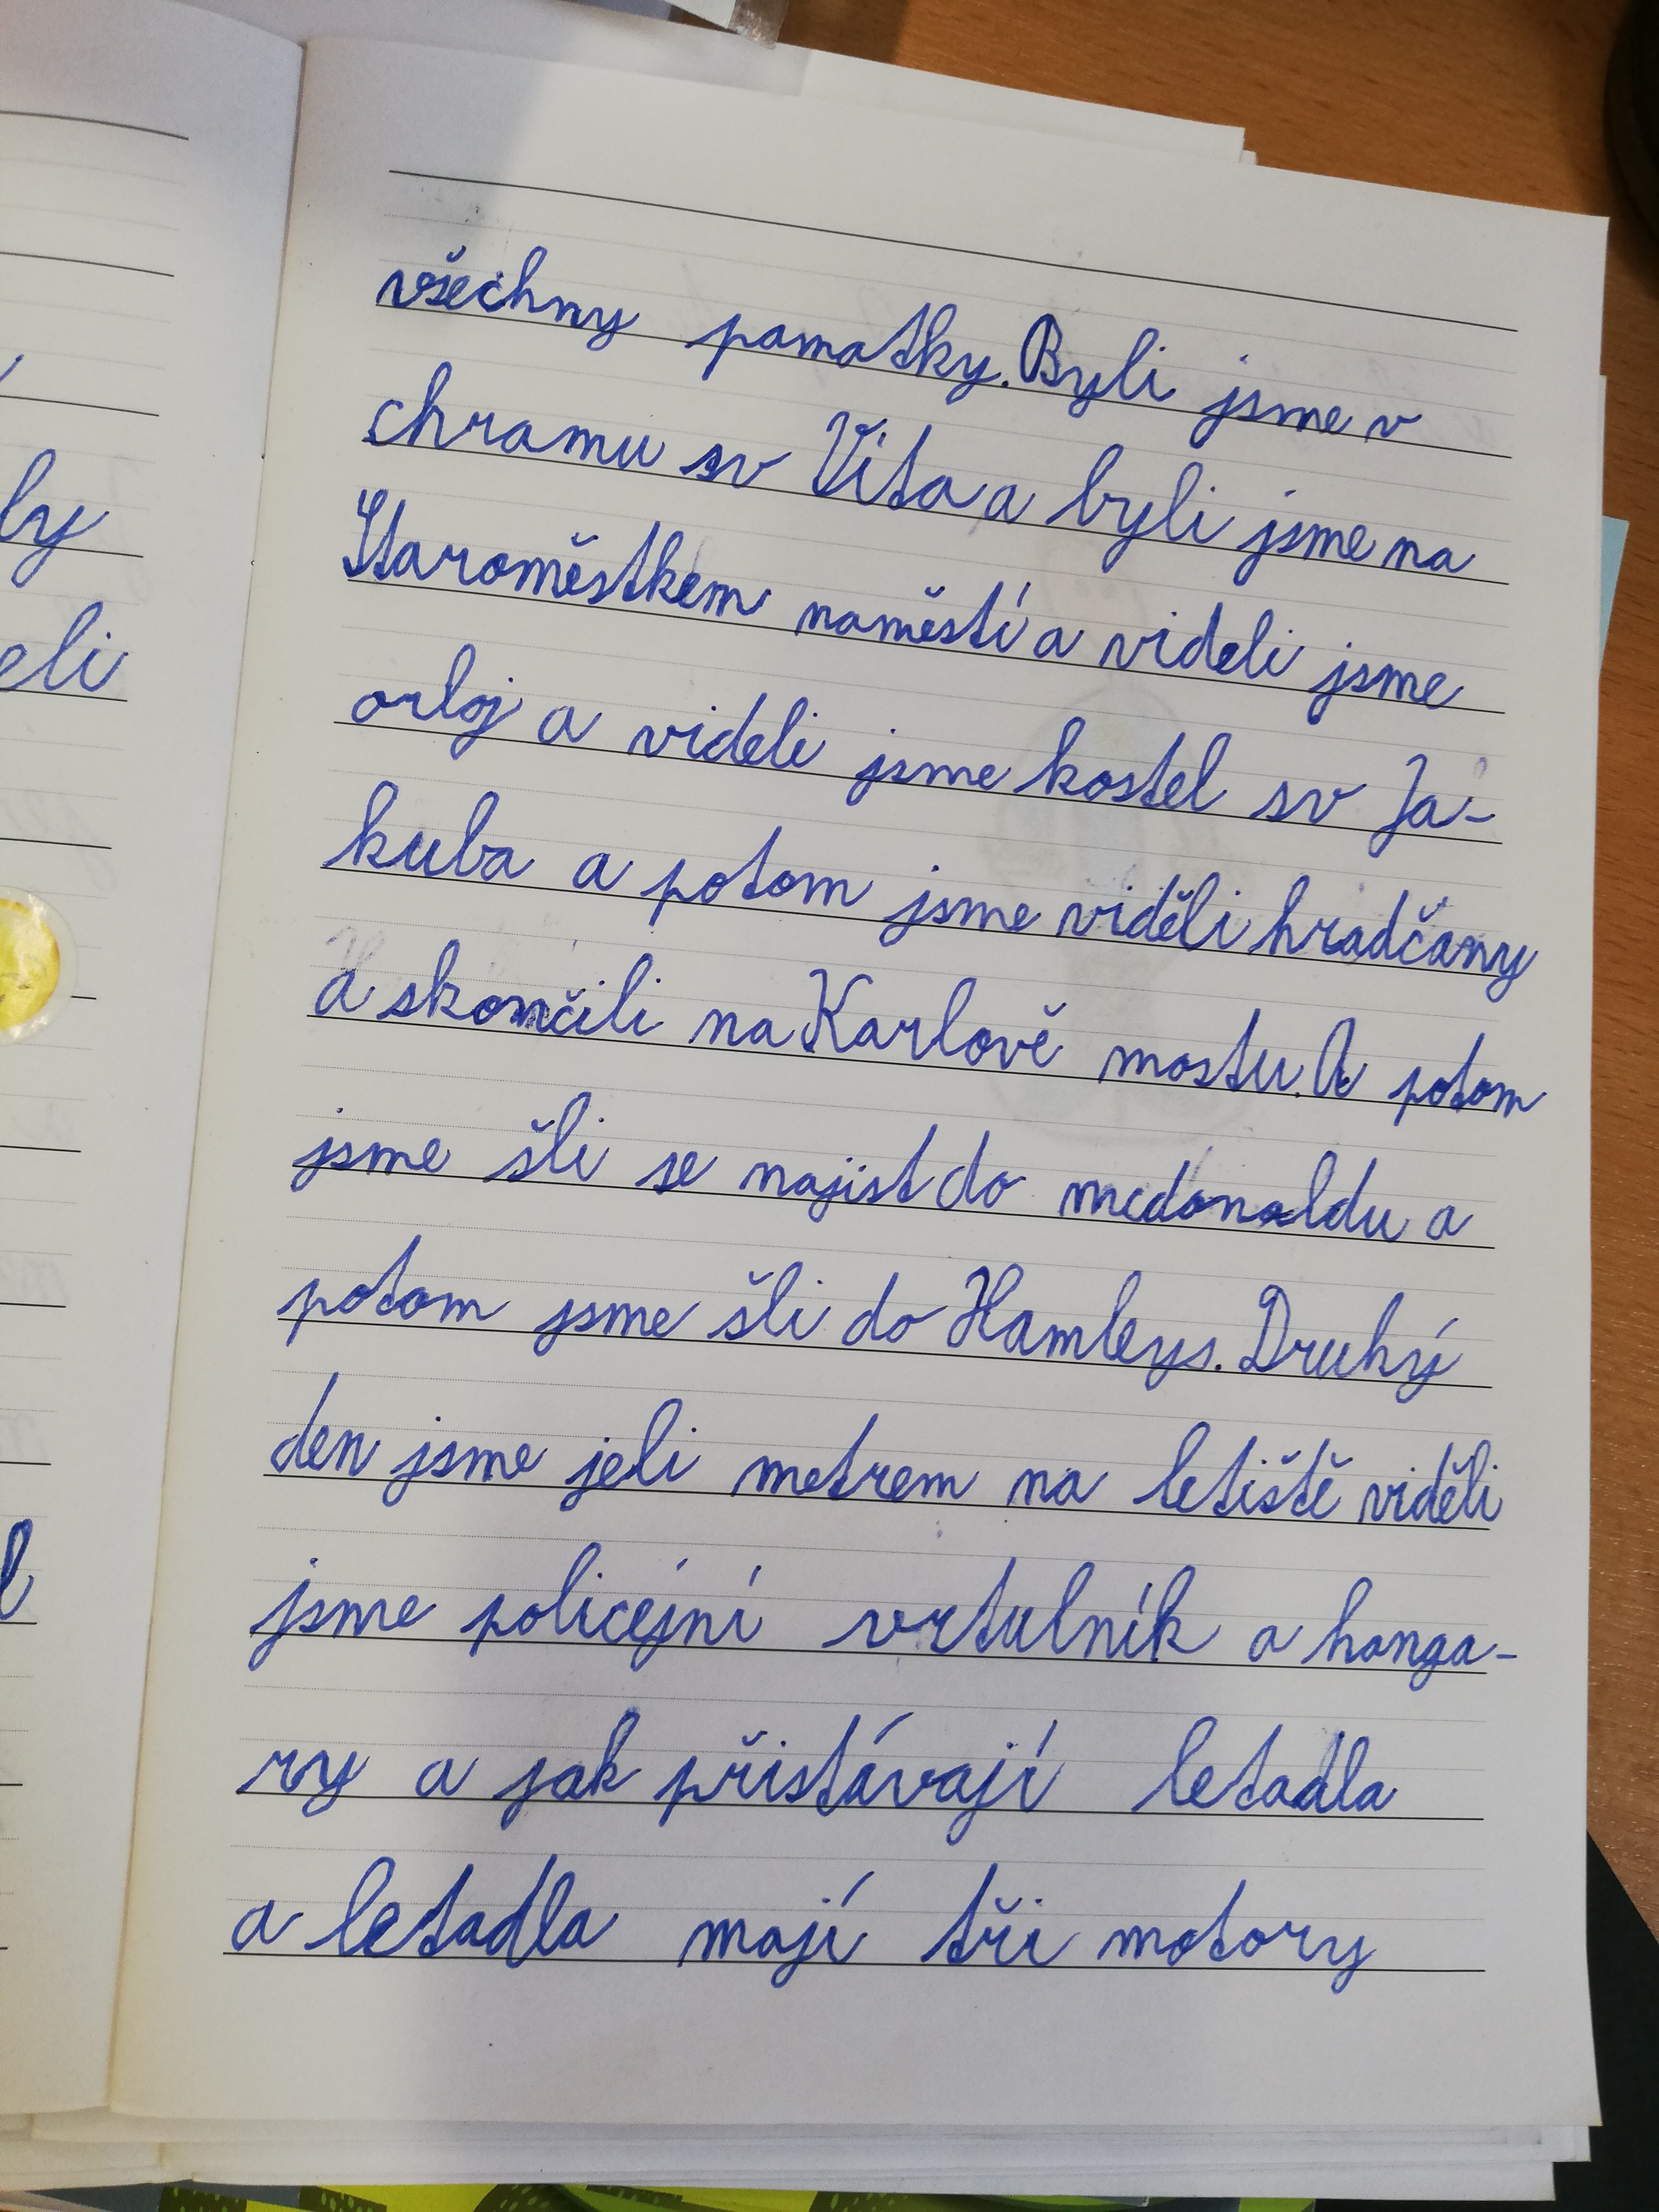 všechny pamatky. Byli jsme v
chramu sv Víta a byli jsme na
Staroměstkem naměstí a videli jsme
orloj a videli jsme kostel sv Ja-
kuba a potom jsme viděli hradčany
a skončili na Karlově mostu. A potom
jsme šli se najist do mcdonaldu a
potom jsme šli do Hamleys. Druhý
den jsme jeli metrem na letiště viděli
jsme policejní vrtulník a hanga-
ry a jak přistávají letadla
a letadla mají tři motory
ly
eli